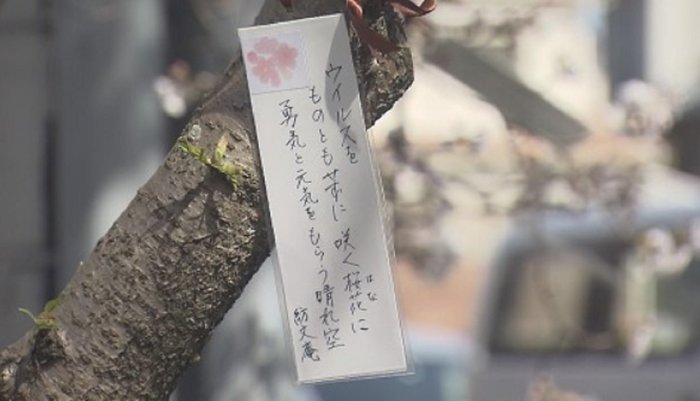 ウイルスを
ものともせずに 咲く桜花に
はな
勇気と元気をもらう晴れ空
紡文庵